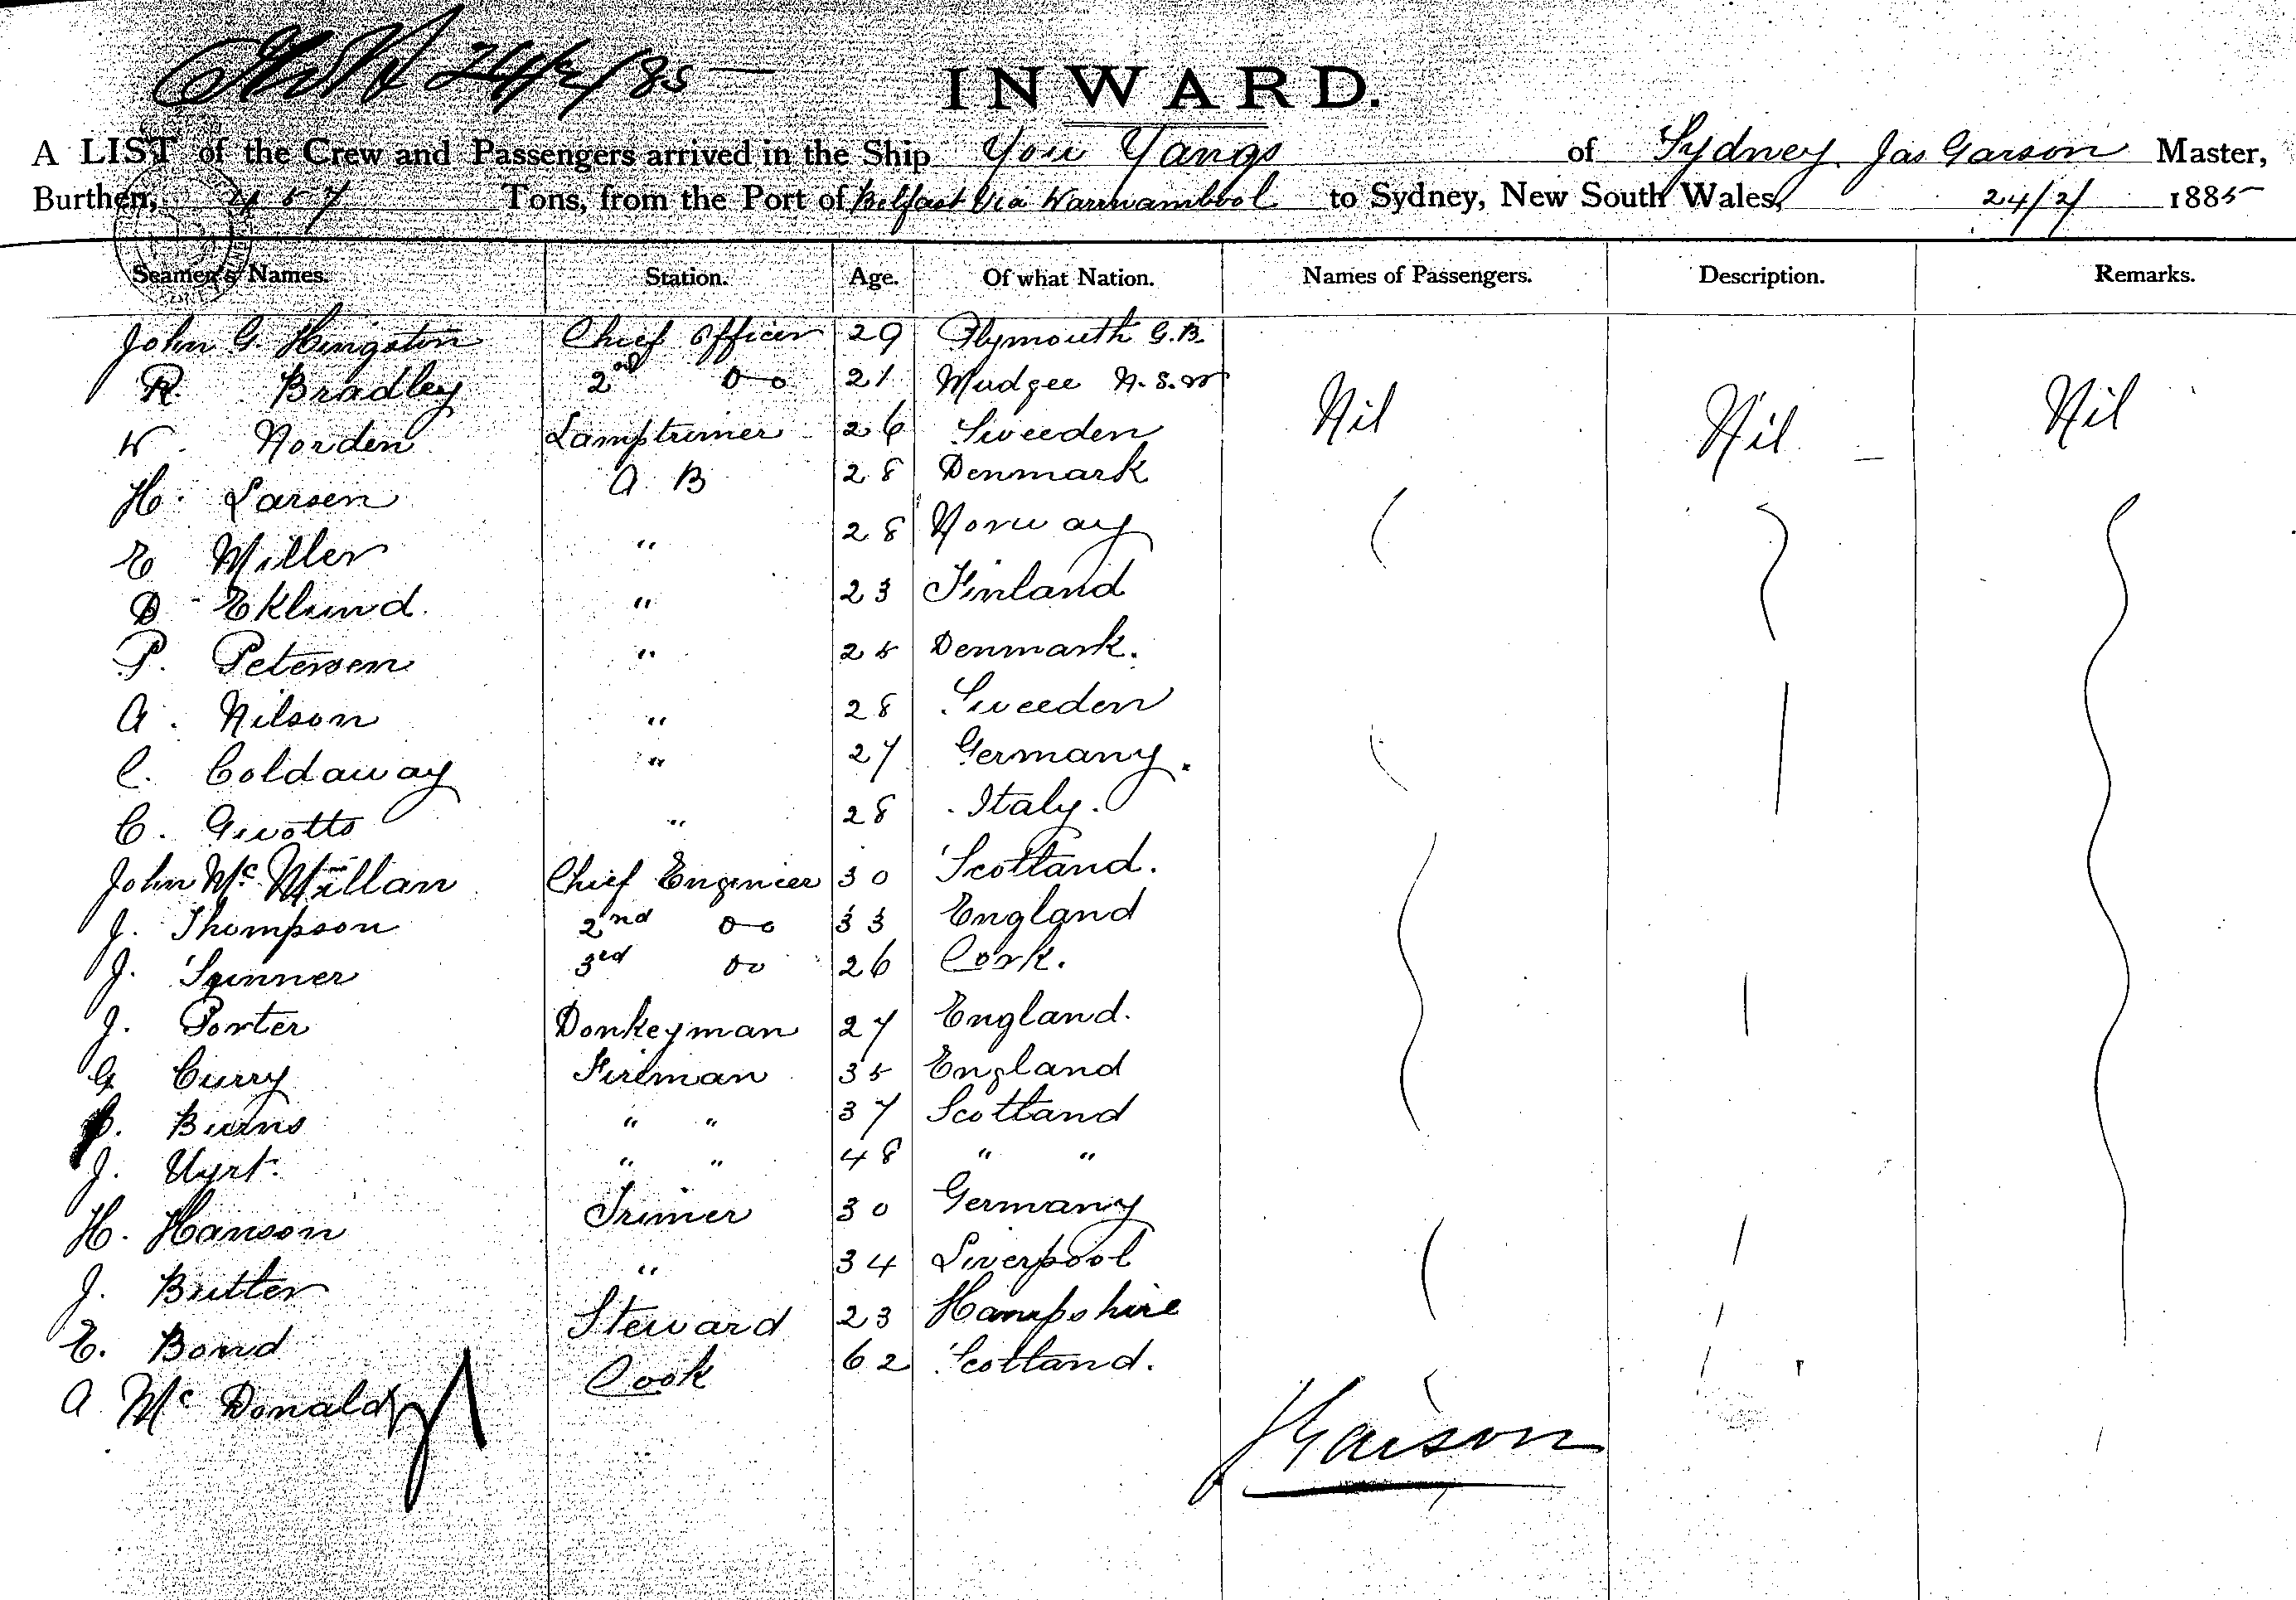 24/2/85 —
INWARD.
A LIST of the Crew and Passengers arrived in the Ship You Yangs of Sydney. Jas Garson Master,
Burthen, 457 Tons, from the Port of Belfast Via Warrnambool to Sydney, New South Wales, 24/2/ 1885
Seamen's Names. Station. Age. Of what Nation. Names of Passengers. Description. Remarks.
John G. Hingston Chief Officer 29 Plymouth G.B.
R. Bradley 2nd Do 21 Mudgee N.S.W
W. Norden Lamptrimer 26 Sweeden Nil Nil — Nil
H. Larsen A B 28 Denmark
E Miller " 28 Norway
D Eklund. " 23 Finland
P. Petersen " 25 Denmark.
A. Nilson " 28 Sweeden
C. Coldaway " 27 Germany.
C. " 28 Italy.
John McMillan Chief Engineer 30 Scotland.
J. Thompson 2nd Do 33 England
J. 3rd Do 26 Cork.
J. Porter Donkeyman 27 England.
G Curry Fireman 35 England
Burns " " 37 Scotland
J. " " 48 " "
H. Hanson Trimer 30 Germany
J. Butler " 34 Liverpool
E. Bond Steward 23 Hampshire
A McDonald Cook 62 Scotland.
J Garson